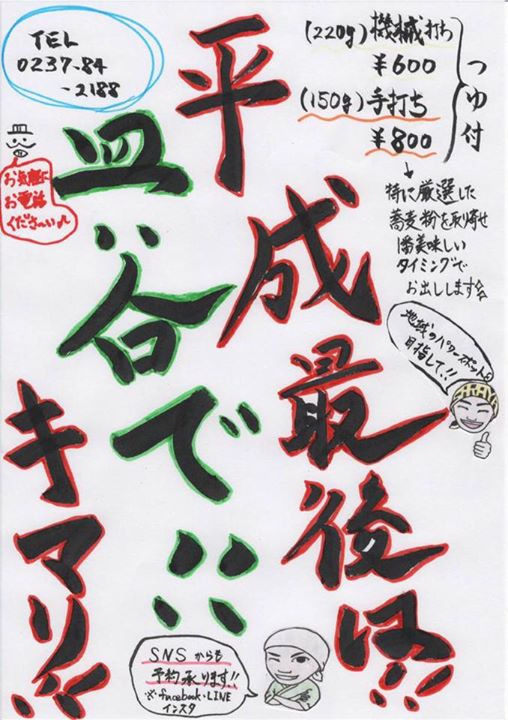 平成最後は!!
皿谷で!!
キマリ!!
TEL
0237-84
-2188
お気軽に
お電話
くださ〜い♪
(220g)機械打ち
¥600
(150g)手打ち
¥800
つゆ付
特に厳選した
蕎麦粉を取り寄せ
1番美味しい
タイミングで
お出しします
地域のパワースポットを
目指して!!
SNSからも
予約承ります!!
※facebook・LINE
インスタ